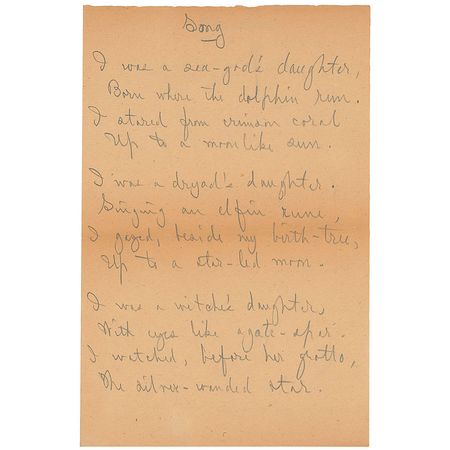 Song
I was a sea-god's daughter,
Born where the dolphin run.
I stared from crimson coral
Up to a moonlike sun.
I was a dryad's daughter.
Singing an elfin rune,
I gazed, beside my birth-tree,
Up to a star-led moon.
I was a witch's daughter,
With eyes like agate-spar.
I watched, before her grotto,
The silver-wanded star.